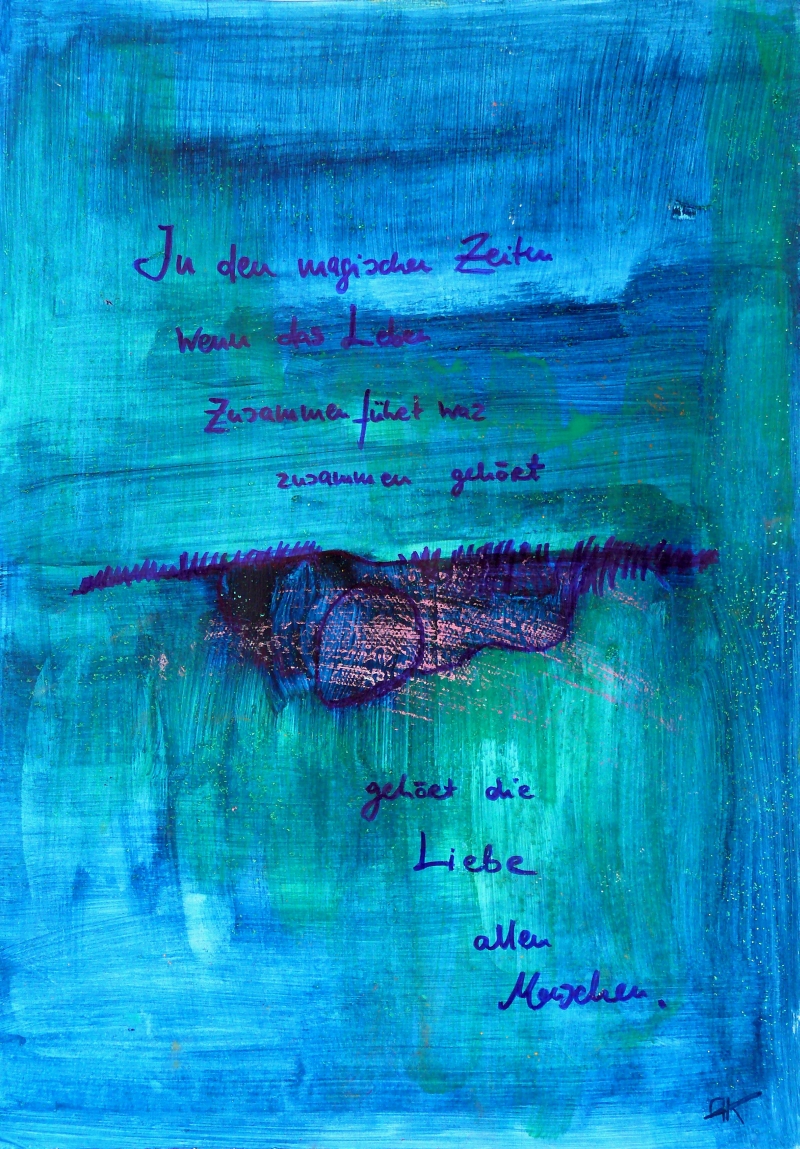 In den magischen Zeiten
Wenn das Leben
Zusammen führt was
zusammen gehört
gehört die
Liebe
allen
Menschen.
AK